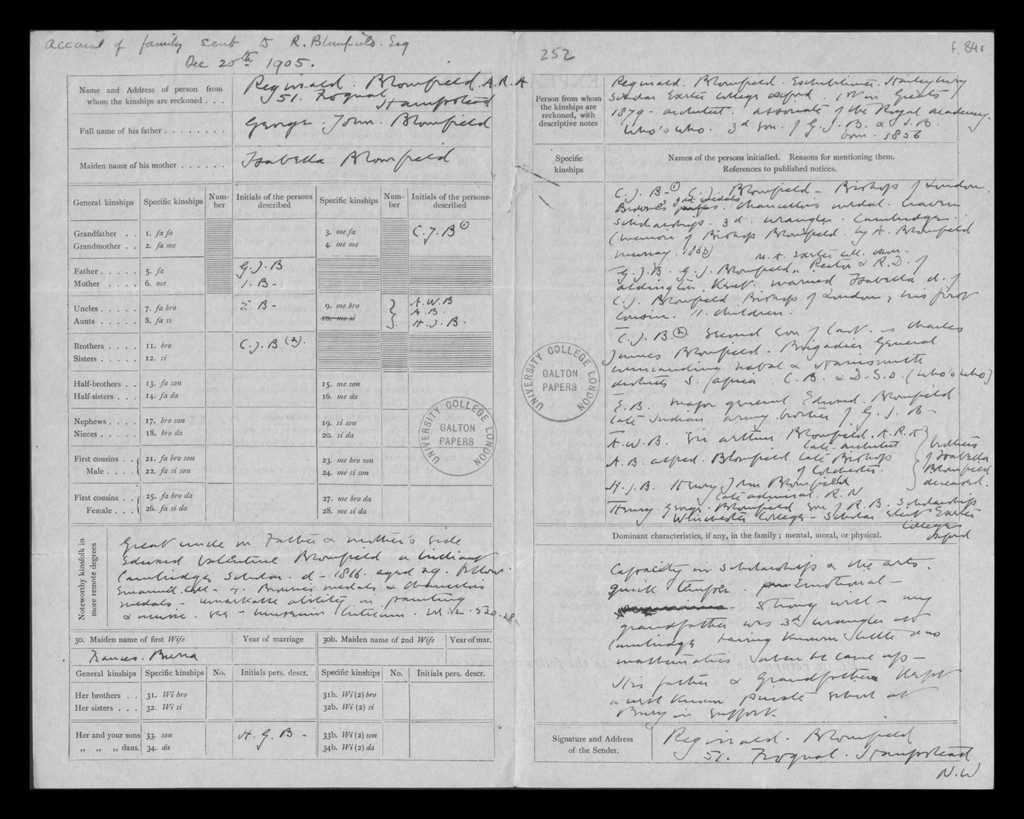 Account of family sent to R. Blomfield Esq
Dec 20th 1905.
252
f. 84r
Name and Address of person from whom the kinships are reckoned . . .
Reginald. Blomfield. A.R.A
51. Frognal Hampstead
Full name of his father . . . . . . . .
George. John. Blomfield
Maiden name of his mother . . . . . .
Isabella Blomfield
General kinships Specific kinships Number Initials of the persons described Specific kinships Number Initials of the persons described
Grandfather . . 1. fa fa 3. me fa C.J.B ①
Grandmother . . 2. fa me 4. me me
Father . . . . . 5. fa G.J.B
Mother . . . . . 6. me I.B-
Uncles . . . . . 7. fa bro E.B- 9. me bro A.W.B
A.B.
Aunts . . . . . 8. fa si 10. me si H.J.B.
Brothers . . . . 11. bro C.J.B (2).
Sisters . . . . . 12. si
Half-brothers . . 13. fa son 15. me son
Half-sisters . . . 14. fa da 16. me da
Nephews . . . . 17. bro son 19. si son
Nieces . . . . . 18. bro da 20. si da
First cousins . . 21. fa bro son 23. me bro son
Male . . . . 22. fa si son 24. me si son
First cousins . . 25. fa bro da 27. me bro da
Female . . . 26. fa si da 28. me si da
UNIVERSITY COLLEGE LONDON
GALTON PAPERS
Noteworthy kinsfolk in more remote degrees
Great uncle on Father & mother's side
Edward Valentine Blomfield a brilliant
Cambridge Scholar. d- 1816. aged 29. Fellow.
Emanuel. Coll- Browne's medals & Chancellors
medals- remarkable ability in painting
& music. Museum Criticum.
30. Maiden name of first Wife Year of marriage 30b. Maiden name of 2nd Wife Year of mar.
Frances. Burra
General kinships Specific kinships No. Initials pers. descr. Specific kinships No. Initials pers. descr.
Her brothers . . 31. Wi bro 31b. Wi (2) bro
Her sisters . . . 32. Wi si 32b. Wi (2) si
Her and your sons 33. son H.G.B- 33b. Wi (2) son
„ „ „ daus. 34. da 34b. Wi (2) da
Person from whom the kinships are reckoned, with descriptive notes
Reginald. Blomfield. Exhibitioner. Haileybury
Scholar Exeter College Oxford. 1st in Greats
1879- architect. associate of the Royal academy.
Who's who. 3d son. of G.J.B. & I.B.
born. 1856
Specific kinships
Names of the persons initialled. Reasons for mentioning them.
References to published notices.
C.J.B- ① C.J. Blomfield- Bishop of London.
Browne's medals. Chancellors medal. Craven
Scholarship. 3d. wrangler. Cambridge.
(memoir of Bishop Blomfield. by A. Blomfield
Murray. 1863) M.A. Exeter Coll.
G.J.B. G.J. Blomfield, Rector & R.D. of
Aldington. Kent. married Isabella d. of
C.J. Blomfield. Bishop of London, his first
cousin. 11. children.
C.J.B (2) Second son of last. is Charles
James Blomfield. Brigadier General
commanding Natal &
districts S. Africa. C.B. & D.S.O. (who's who)
E.B. major general. Edward. Blomfield
late Indian army brother of G.J.B-
A.W.B. Sir Arthur Blomfield. A.R.A
late. architect
A.B. Alfred. Blomfield late Bishop
of Colchester.
H.J.B. Henry John Blomfield
late admiral. R.N
brothers
of Isabella
Blomfield
deceased.
Henry. George. Blomfield son of R.B. Scholarship
Winchester College- Scholar elect Exeter
College
Oxford
Dominant characteristics, if any, in the family; mental, moral, or physical.
Capacity in scholarship & the arts.
quick temper. Emotional-
Strong will- my
grandfather was 3rd wrangler at
Cambridge having known little or no
mathematics when he came up-
His father & Grandfather kept
a well known private school at
Bury in Suffolk.
Signature and Address of the Sender.
Reginald. Blomfield
51. Frognal. Hampstead
N.W
UNIVERSITY COLLEGE LONDON
GALTON PAPERS